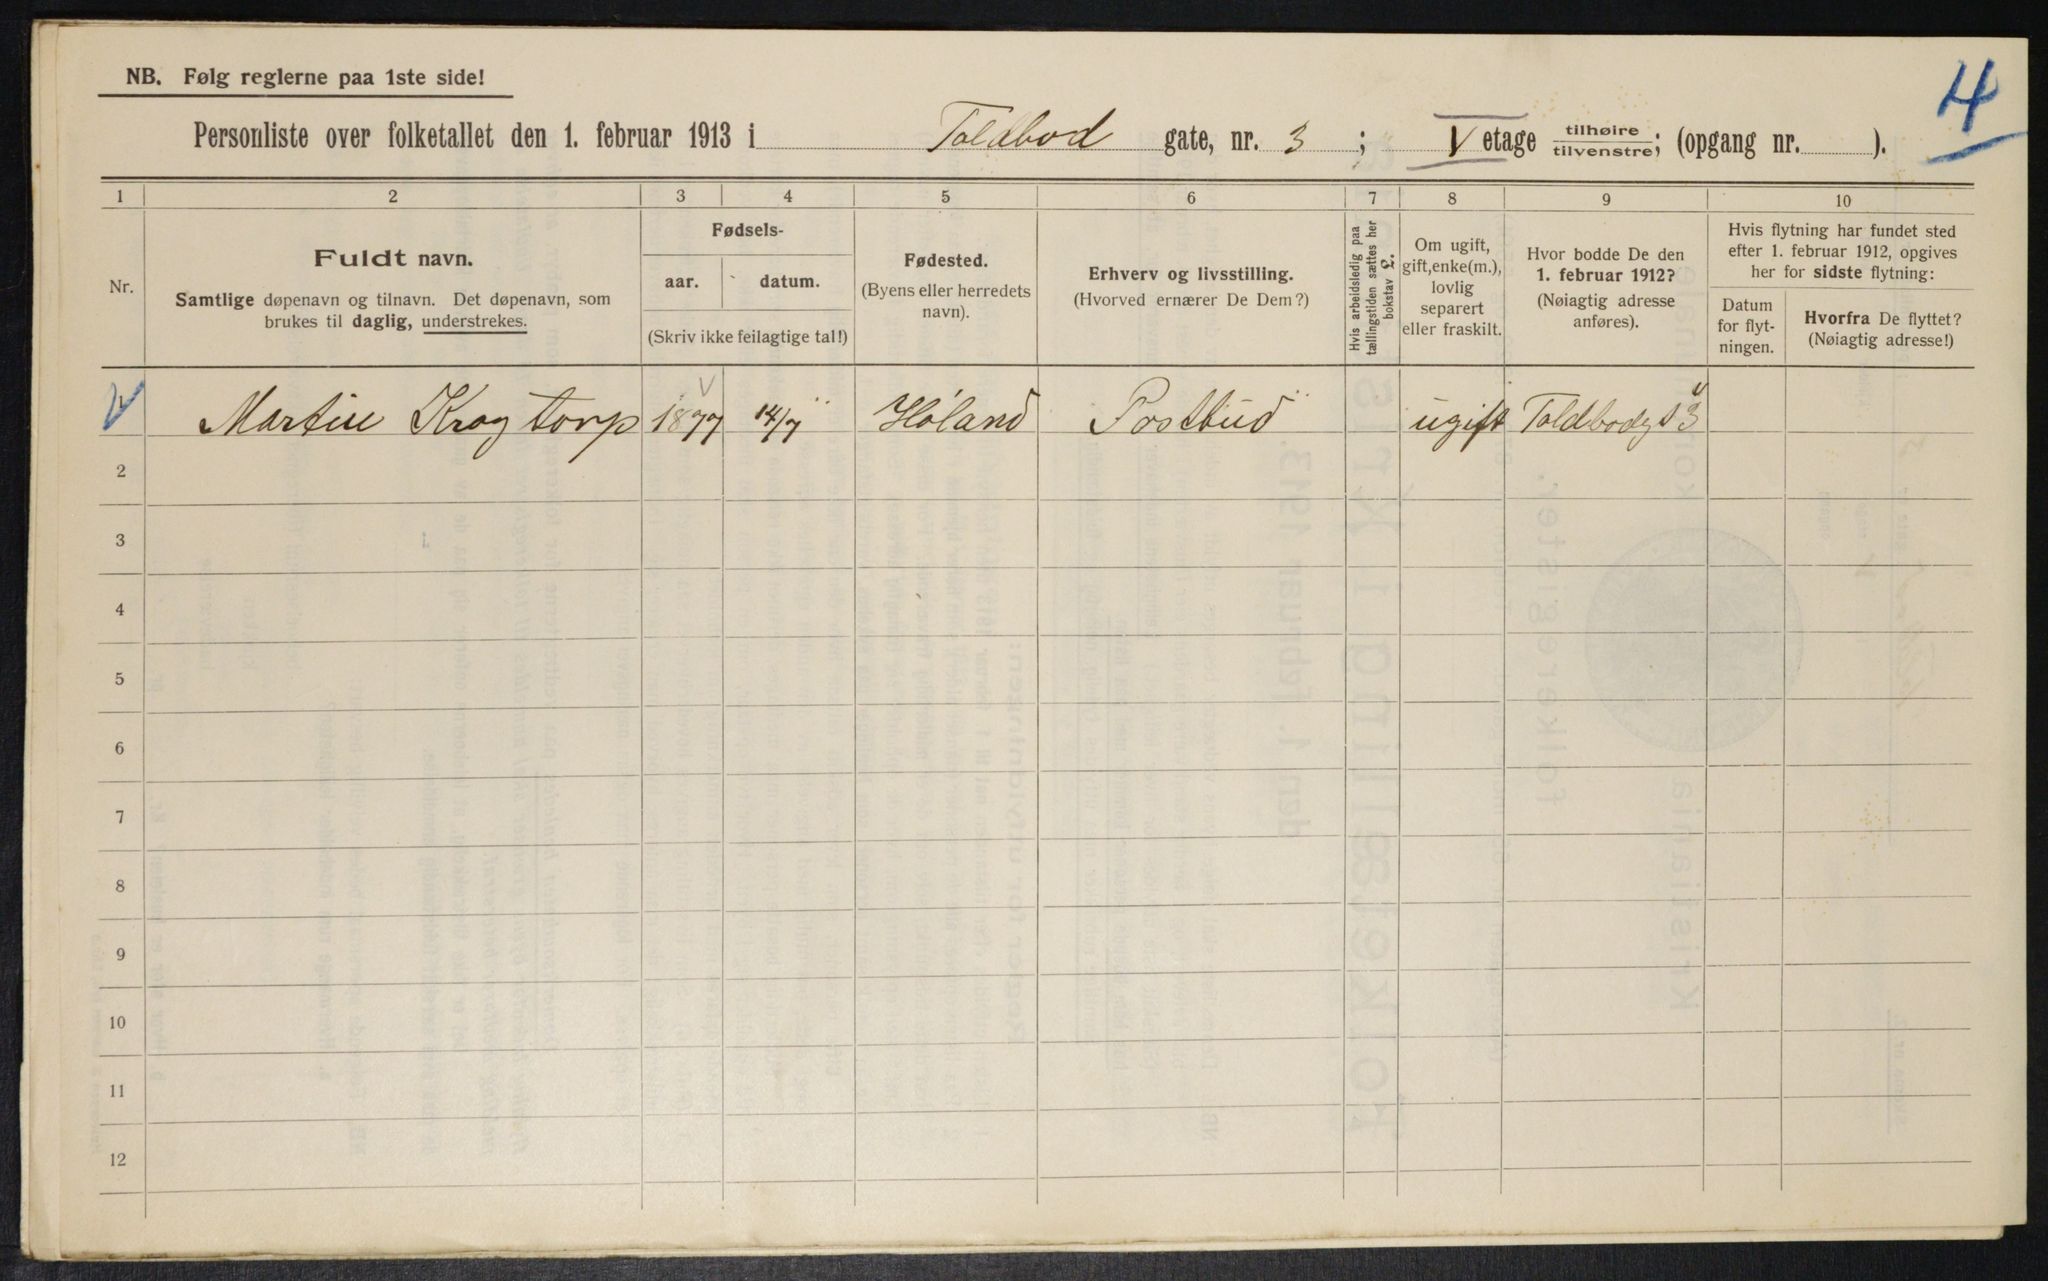 4
NB. Følg reglerne paa 1ste side!
Personliste over folketallet den 1. februar 1913 i Toldbod gate, nr. 3; V etage tilhøire tilvenstre; (opgang nr. ).
1 2 3 4 5 6 7 8 9 10
Nr.
Fuldt navn.
Samtlige døpenavn og tilnavn. Det døpenavn, som
brukes til daglig, understrekes.
Fødsels-
aar. datum.
(Skriv ikke feilagtige tal!)
Fødested.
(Byens eller herredets
navn).
Erhverv og livsstilling.
(Hvorved ernærer De Dem?)
Hvis arbeidsledig paa
tællingstiden sættes her
bokstav L.
Om ugift,
gift, enke(m.),
lovlig
separert
eller fraskilt.
Hvor bodde De den
1. februar 1912?
(Nøiagtig adresse
anføres).
Hvis flytning har fundet sted
efter 1. februar 1912, opgives
her for sidste flytning:
Datum
for flyt-
ningen.
Hvorfra De flyttet?
(Nøiagtig adresse!)
Martin Krogtorp 1877 14/7 Høland Postbud ugift Toldbodgt 3
2
3
4
5
6
7
8
9
10
11
12